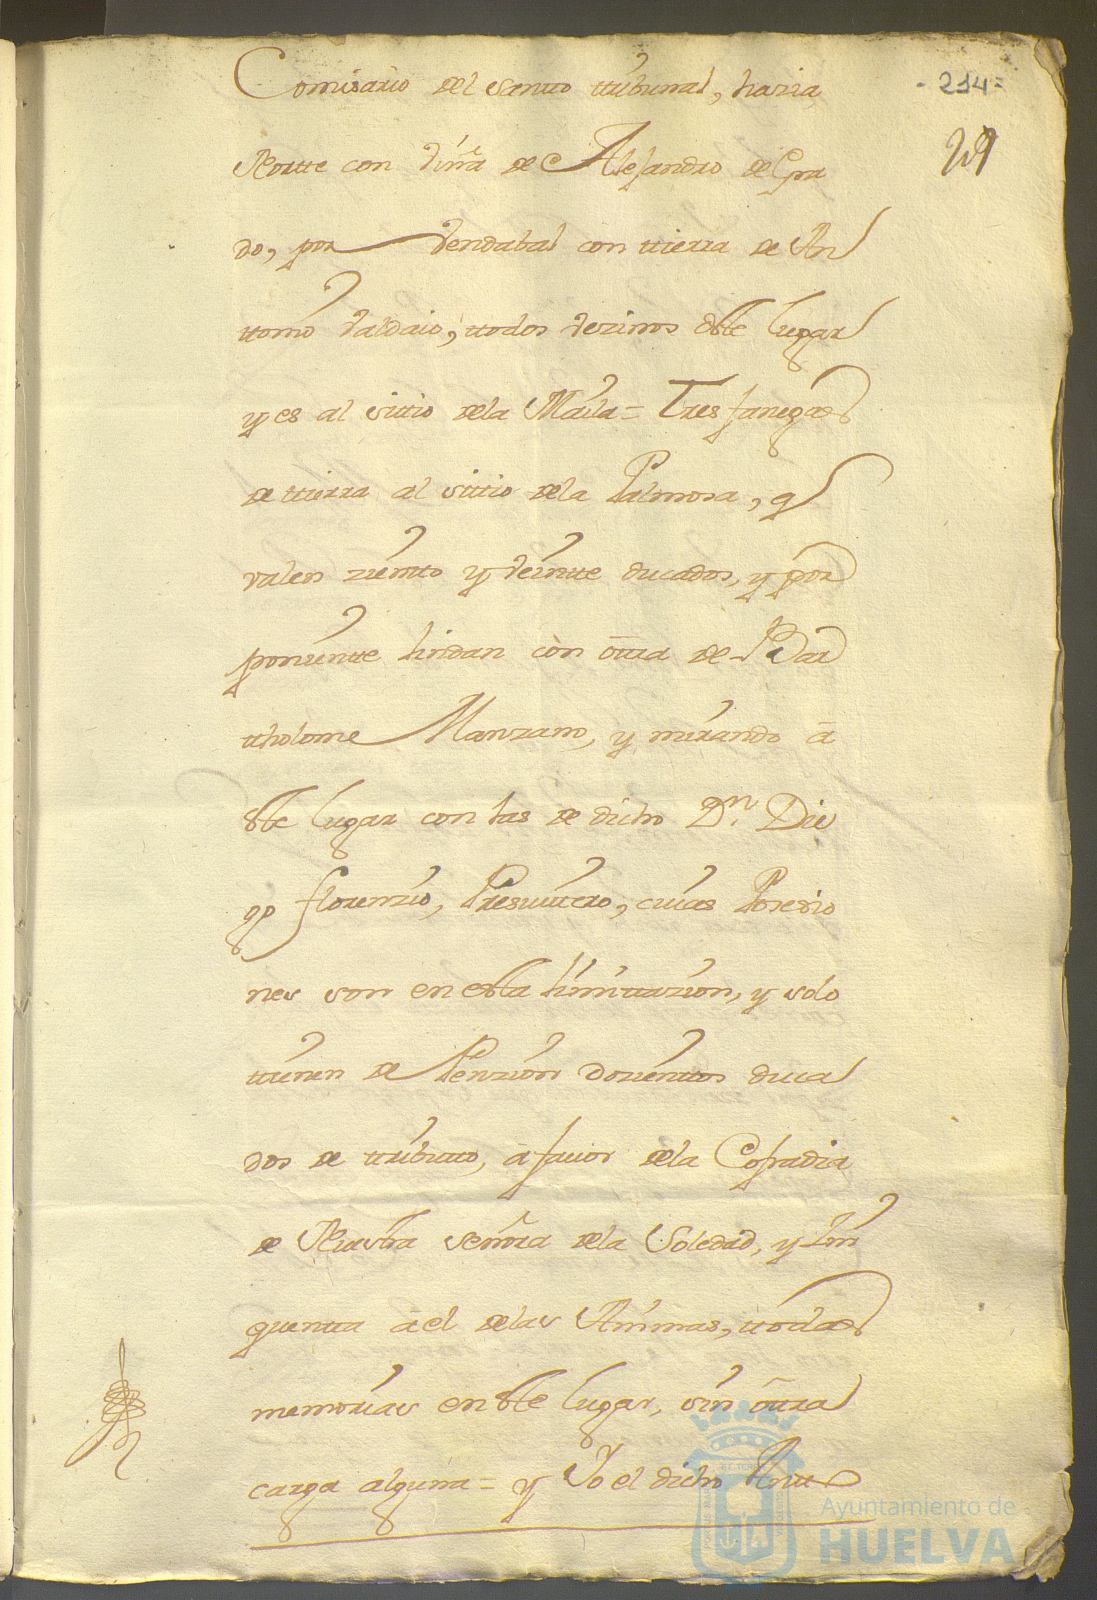 Comisario del santo ttribunal, hazia
- 214 =
Nortte con viña de Alejandro de Gra
do, por vendabal con ttierra de An
ttonio Valdaio, ttodos vezinos dste lugar
y es al sittio dela Maila = Tres fanegas
de ttierra al sittio dela Palmosa, q
valen zientto y veintte ducados, y por
ponientte lindan con ottra de Bar
ttholome Manzano, y mirando â
ste lugar con las de dicho Dn. Die
go florenzio, Presvittero, cuias Posesio
nes son en esta limittazion, y solo
ttienen de Penzion dozienttos duca
dos de ttributto, â fauor dela Cofradia
de Nuestra señora dela Soledad, y
quentta â el delas Animas, ttodas
memorias en ste lugar, sin ottra
carga alguna = y Yo el dicho Antt
Ayuntamiento de
HUELVA